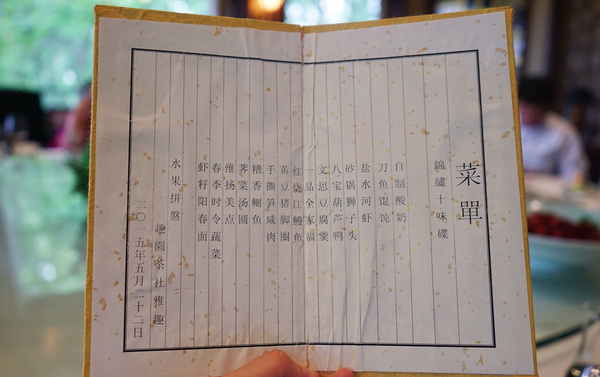 菜單
錦繡十味碟
自制酸奶
刀鱼馄饨
盐水河虾
砂锅狮子头
八宝葫芦鸭
文思豆腐羹
一品全家福
红烧江鳗鱼
黄豆猪脚圈
手撕笋咸肉
荠菜汤圆
糟香鲥鱼
维扬美点
春季时令蔬菜
虾籽阳春面
水果拼盤
趣園茶社雅趣
二〇一五年五月二十二日